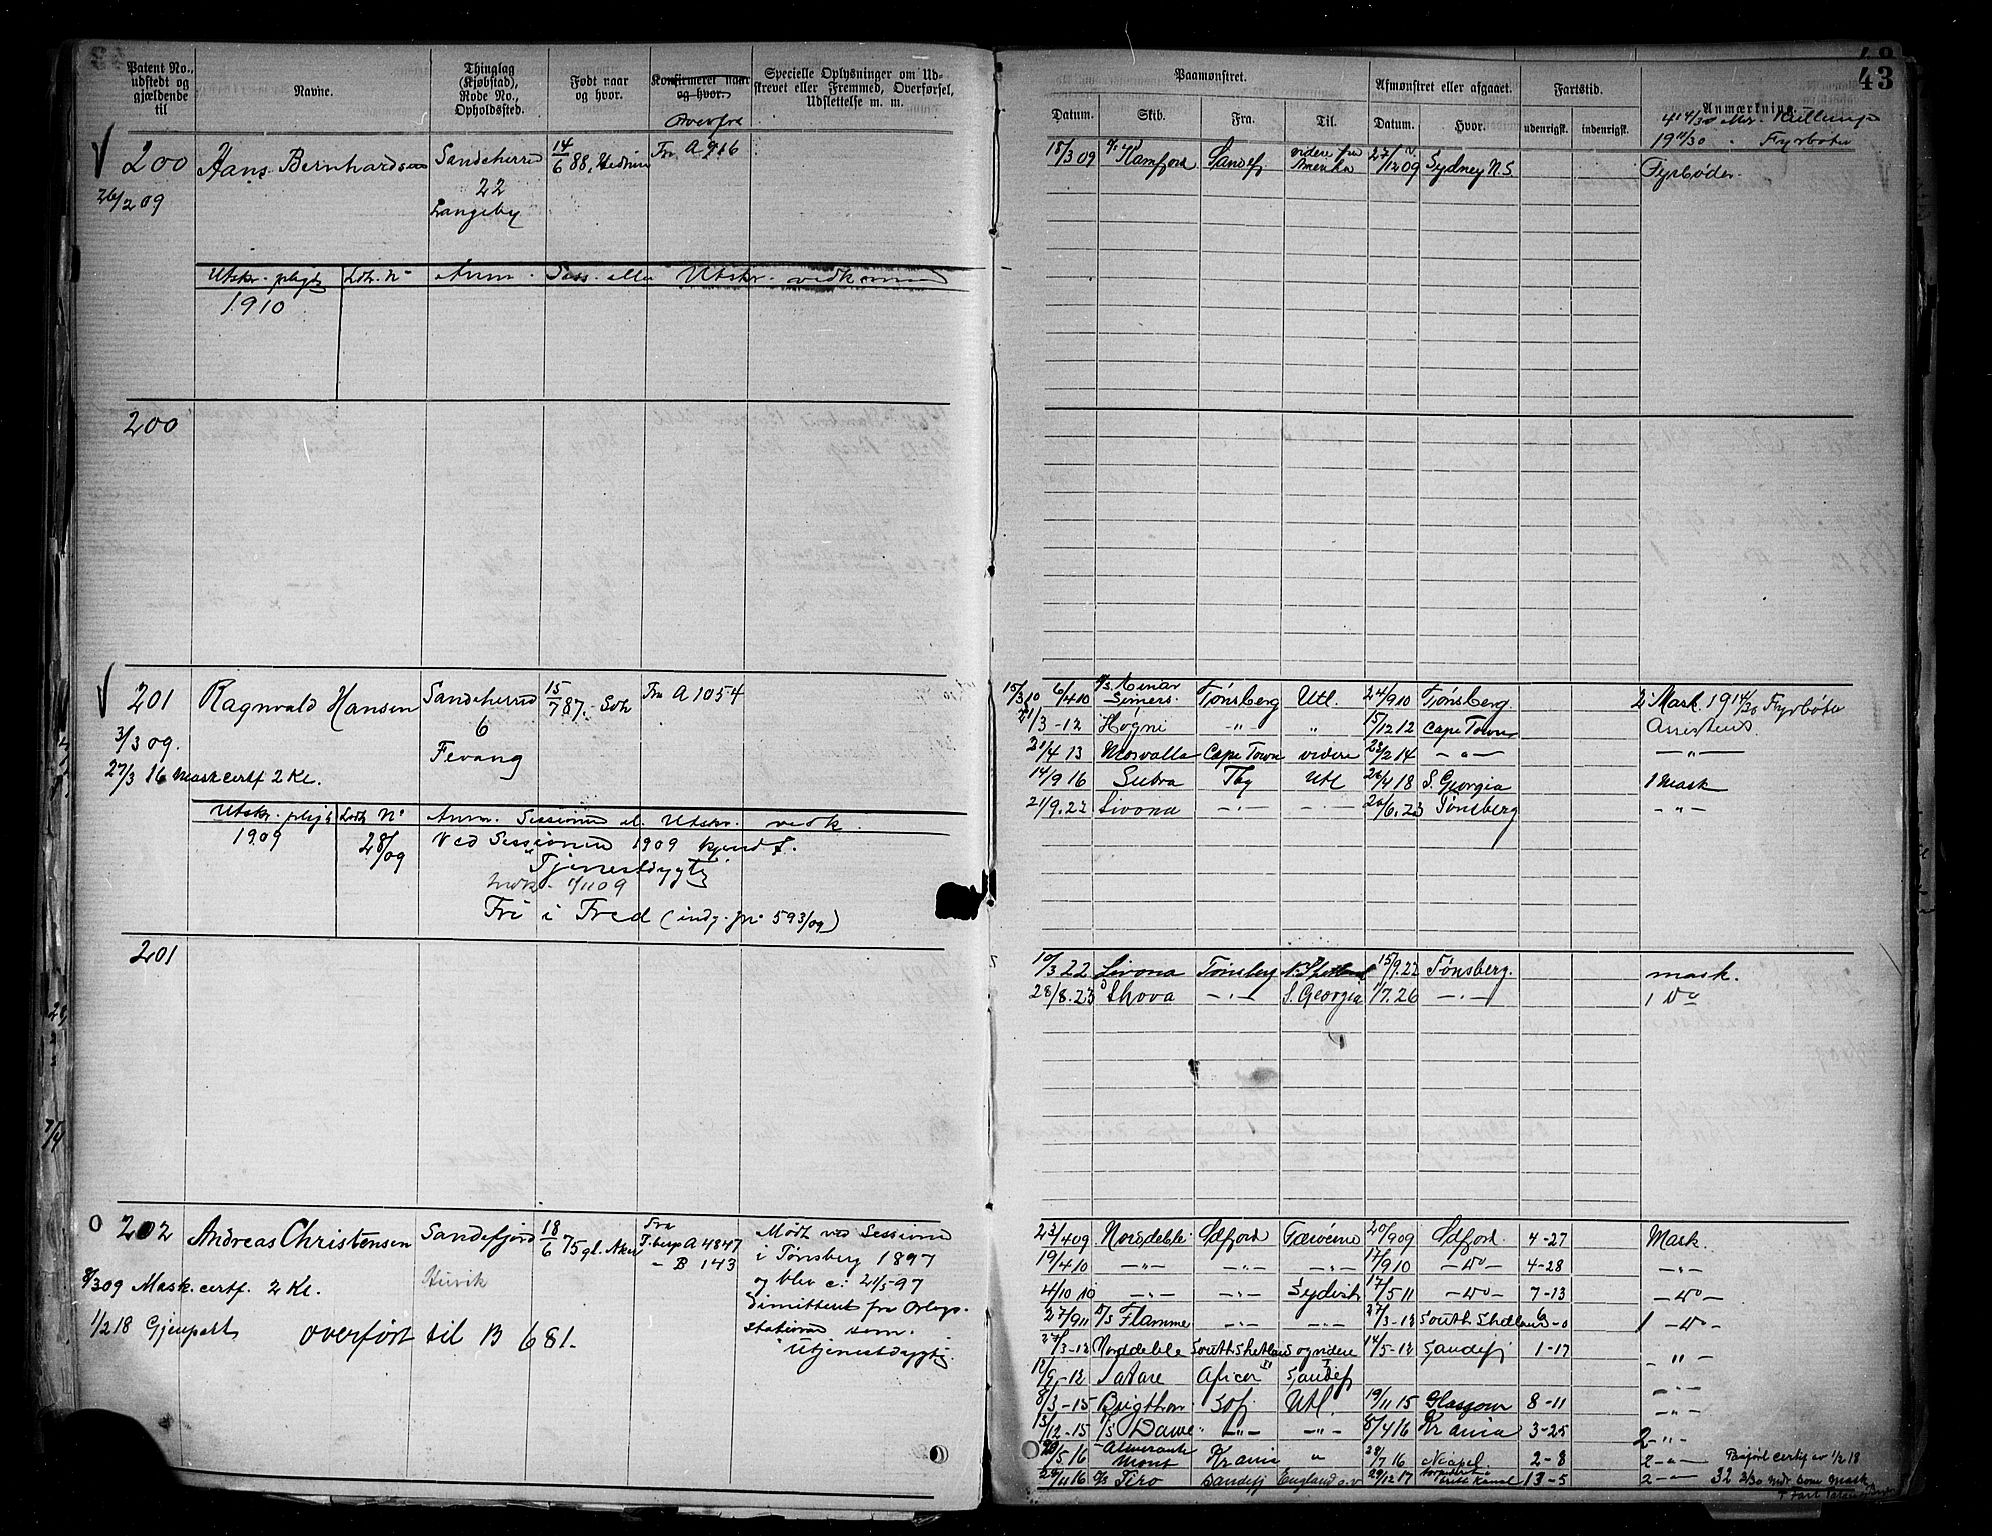 43
Patent No., udstedt og gjældende til
Navne.
Thinglag (Kjøbstad), Rode No., Opholdssted.
Født naar og hvor.
Konfirmeret naar og hvor.
Overført
Specielle Oplysninger om Udskrevet eller Fremmed, Overførsel, Udslettelse m. m.
Paamønstret.
Afmønstret eller afgaaet.
Fartstid.
Anmærkning.
Datum. Skib. Fra. Til. Datum. Hvor. udenrigsk. indenrigsk.
200 Hans Bernhardsen Sandeherred 14/6 88, Hedrum Fra A 916
26/2 09 22
Langeby
15/3 09 Kamfjord Sandefj videre fra Amerika 27/12 09 Sydney N.S. Fyrbøder.
Utskr. pligt Lodtr. No Anm. Sess. eller Utskr. vedkommende
1910
200
201 Ragnvald Hansen Sandeherred 15/7 87. Sdh Fra A 1054
3/3 09. 6
Fevang
27/3 16 Mask certf 2 Kl.
6/4 10 Einar Simers. Tønsberg Utl. 24/9 10 Tønsberg.
21/3-12 Høgni -"- " 15/12 12 Cape Town Assistent
21/4 13 Mosvalla Cape Town videre 23/2 14 -"- -"-
14/9 16 Subra Tbg Utl 26/4 18 S. Georgia 1 Mask
21/9.22 Livona -"- -"- 20/6.23 Tønsberg -"-
Utskr. pligt Lodtr No Anm. Sessionen el. Utskr. vedk.
1909 28/09 Ved Sessionen 1909 kjendt f.
Tjenestdygtig
Fri i Fred (indg. jr. 593/09)
201
10/3 22 Livona Tønsberg 15/9.22 Tønsberg. mask.
28/8.23 Skova -"- S. Georgia 1/7.26 -"- 1 do
202 Andreas Christensen Sandefjord 18/6 75 gl. Aker Fra T.berg A 4847
- B 143
Hurik
Mødt ved Sessionen
i Tønsberg 1897
og blev e: 21/5-97
dimittert fra Orlogs-
stationen som
"Utjenestdygtig".
8/3 09 Mask. certf. 2 Kl.
1/2 18 Gjenpart overført til B 681.
23/4 09 Nordeble Sdfjord Færøerne 20/9 09 Sdfjord. 4-27 Mask.
19/4 10 -"- -"- -"- 17/9 10 -do- 4-28 -"-
4/10 10 -"- -"- Sydish 17/5 11 -do- 7-13 -do-
27/9 11 D/S Flamme -"- -"- 27/3-12 South Shetland 6-0 1 -do-
27/3-12 Norddeble South Shetland og videre 14/5-12 Sandefj 1-17 -"-
12/9-12 Tatare Africa Sandefj -"-
8/3-15 Brigthon Sdfj Utl. 19/11 15 Glasgow 8-11 -"-
13/12-15 D/S Dawe -"- -"- 8/4 16 Kr.ania 3-25 2-"-
5 16 Aliverante Mont Kr.ania " 28/7 16 Neapel. 2-8 2-"-
29/11 16 D/S Tiro Sandefj England o.v 29/12 17 13-5 2-"-
Paaført certif av 1/2 18
32 3/30 mdr som mask